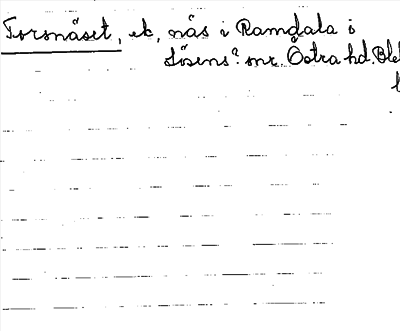 Torsnäset, ek, näs i Ramdala i
Lösens? mr. Östra hd. Blek